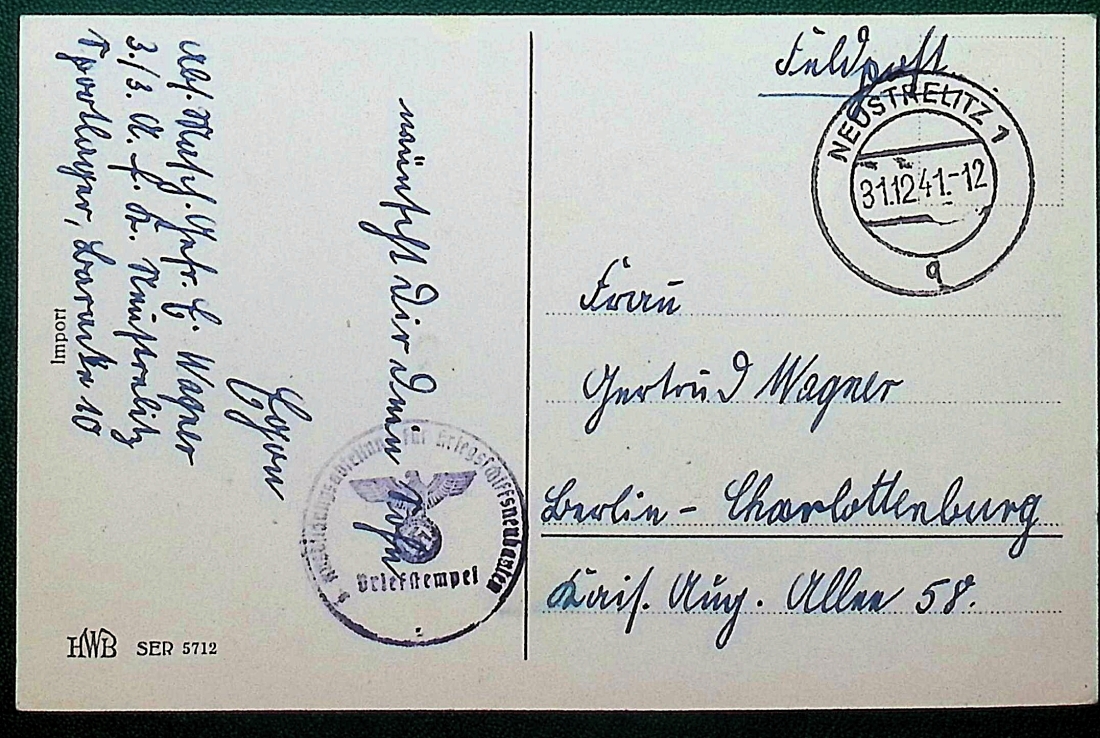 Abs. Masch. Gefr. E. Wagner
3./3. A. f. K. Neustrelitz
Sportlager, Baracke 10
wünscht Dir Dein Sohn
Egon
Import
3. Ausbildungsabteilung für Kriegsschiffsneubauten
Briefstempel
HWB SER 5712
Feldpost
NEUSTRELITZ 1
31.12.41.-12
a
Frau
Gertrud Wagner
Berlin - Charlottenburg
Kais. Aug. Allee 58.